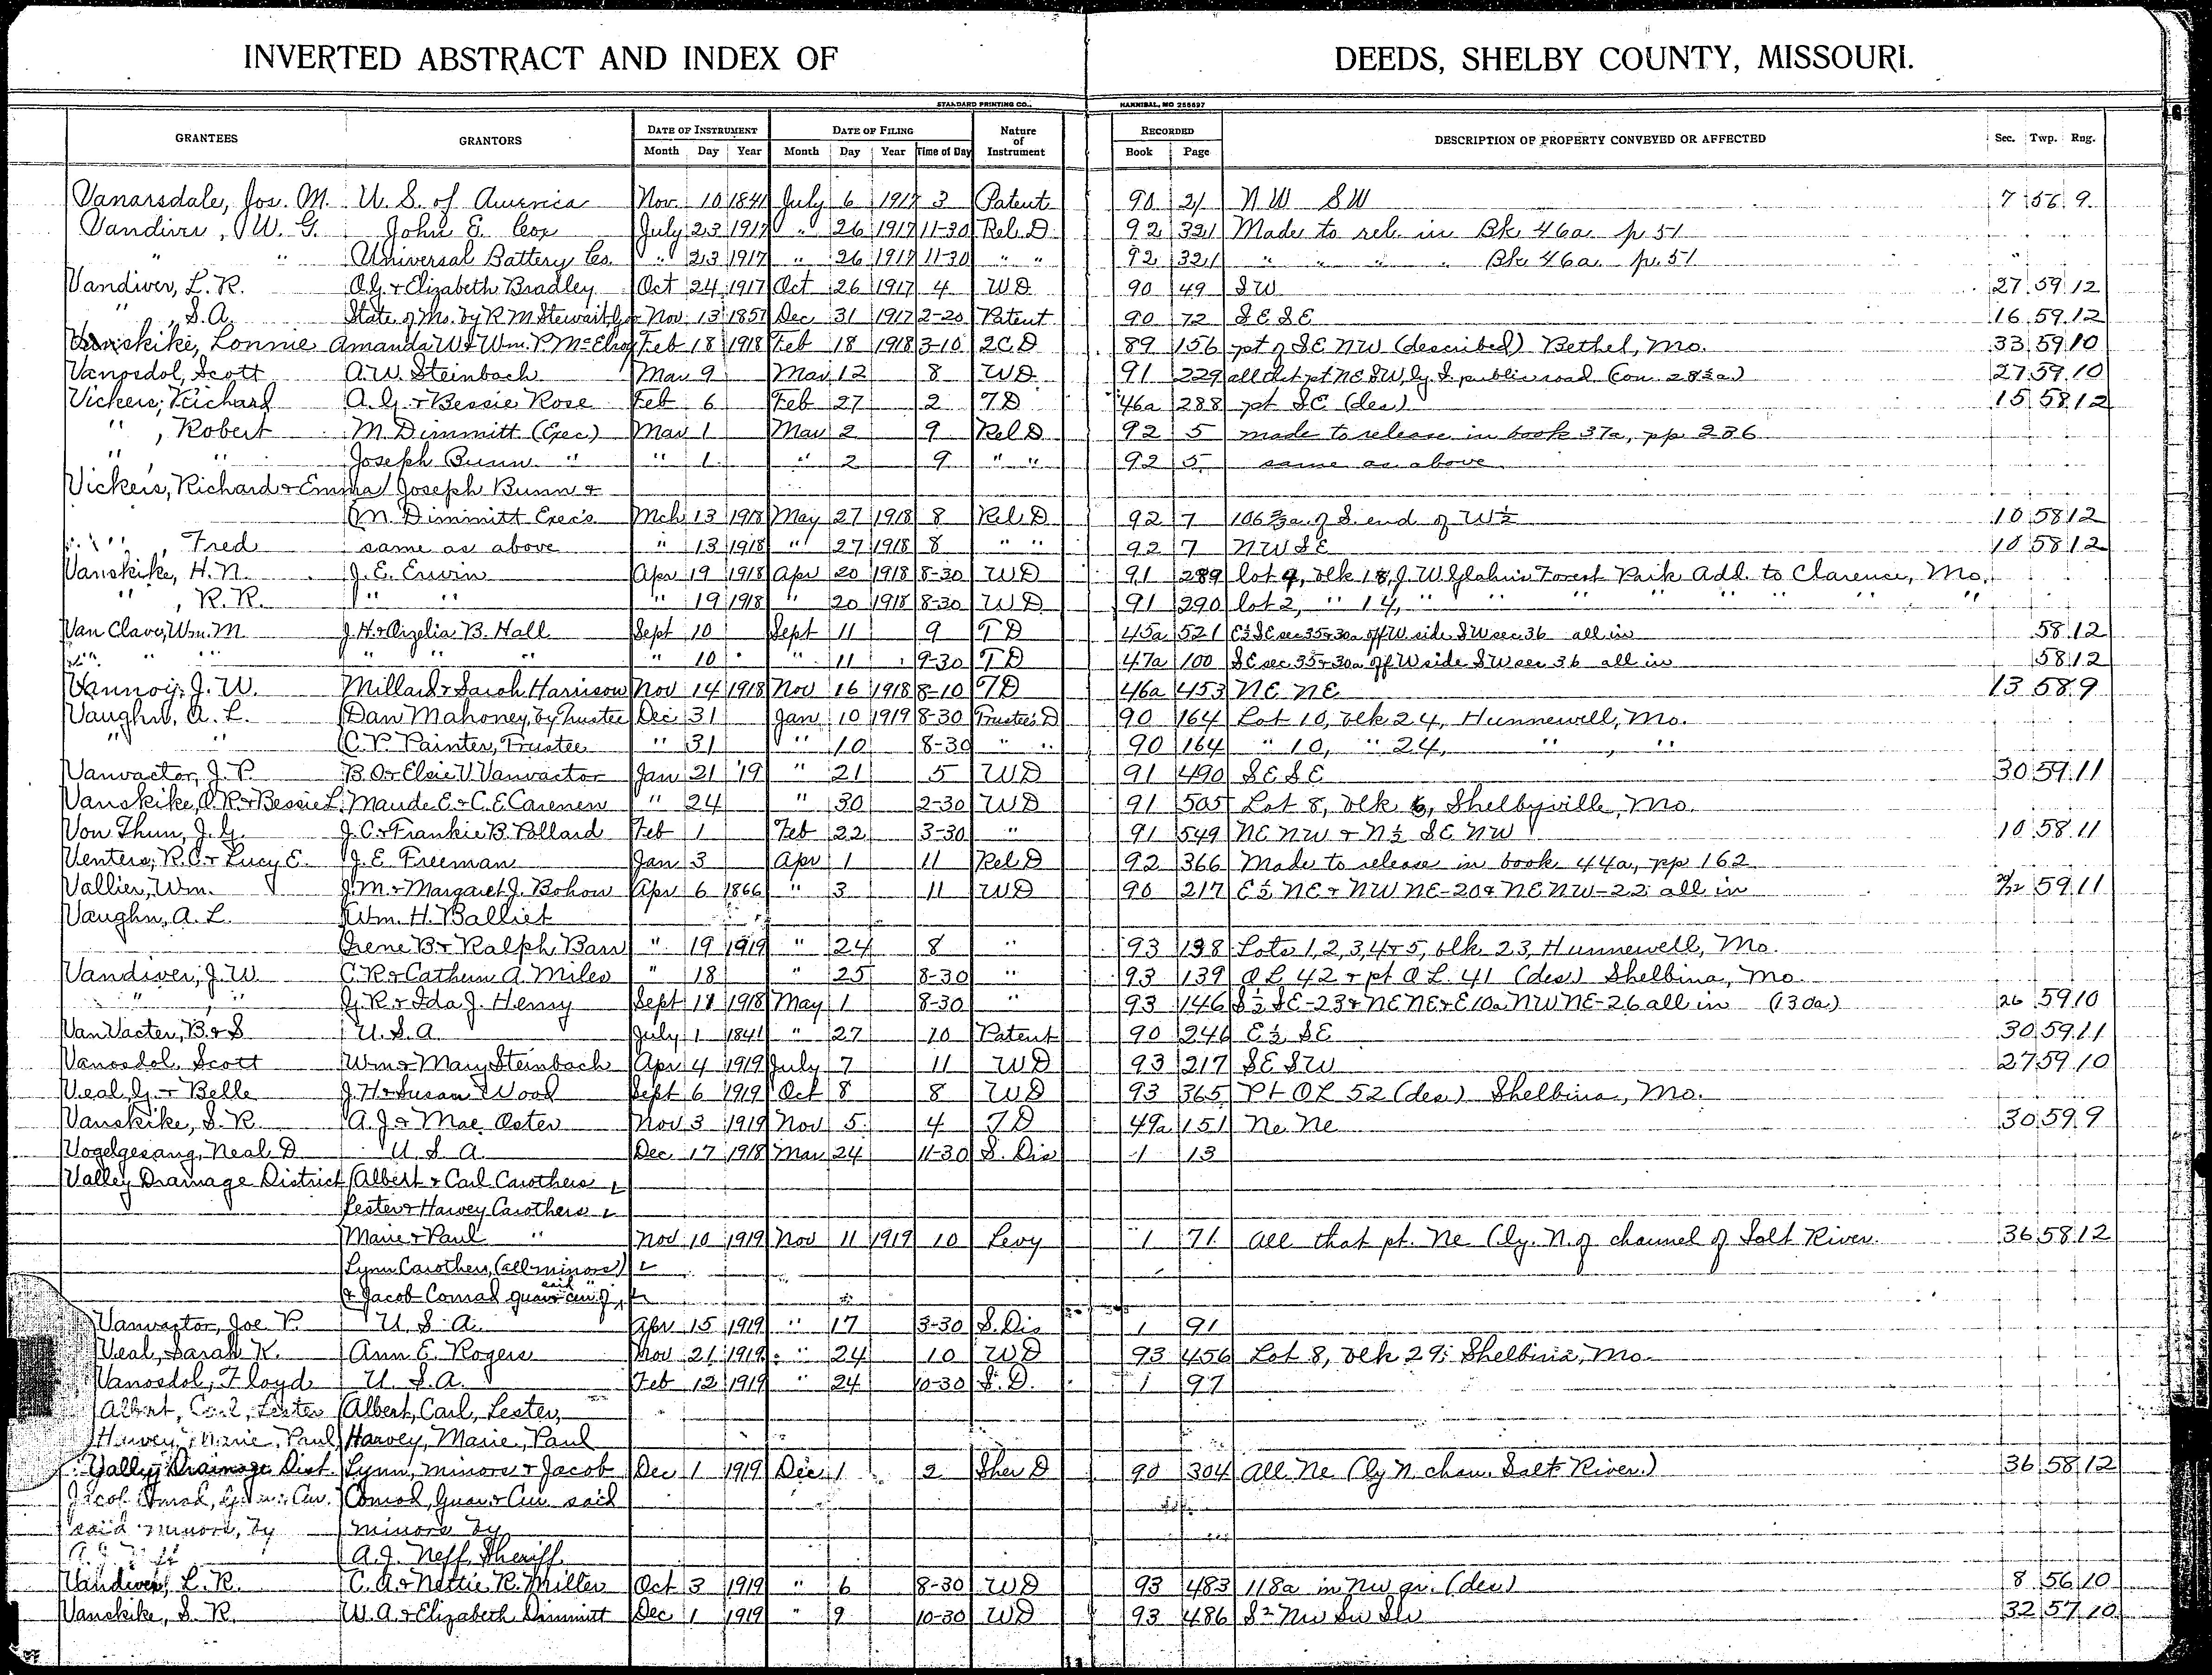 INVERTED ABSTRACT AND INDEX OF DEEDS, SHELBY COUNTY, MISSOURI.
STANDARD PRINTING CO., HANNIBAL, MO 255697
GRANTEES GRANTORS DATE OF INSTRUMENT DATE OF FILING Nature of Instrument RECORDED DESCRIPTION OF PROPERTY CONVEYED OR AFFECTED Sec. Twp. Rng.
Month Day Year Month Day Year Time of Day Book Page
Vanarsdale, Jos. M. U. S. of America Nov. 10 1841 July 6 1917 3 Patent 90 21 NW SW 7 56 9
Vandiver, W. G. John E. Cox July 23 1917 " 26 1917 11-30 Rel. D 92 321 Made to rel. in Bk 46a p 51
" " Universal Battery Co. " 23 1917 " 26 1917 11-30 " " 92 321 " " " " Bk 46a p. 51
Vandiver, L. R. O.G. & Elizabeth Bradley Oct 24 1917 Oct 26 1917 4 WD 90 49 SW 27 59 12
" , S.A. State of Mo. by R M Stewart Nov. 13 1857 Dec 31 1917 2-20 Patent 90 72 SE SE 16 59 12
Vanskike, Lonnie Amanda W & Wm. P. McElroy Feb 18 1918 Feb 18 1918 3-10 2CD 89 156 pt of SE NW (described) Bethel, Mo. 33 59 10
Vanosdol, Scott A.W. Steinbach Mar 9 Mar 12 8 WD 91 229 all that pt NE SW ly S public road (con 28¾a) 27 59 10
Vickers, Richard A. G. & Bessie Rose Feb 6 Feb 27 2 TD 46a 288 pt SE (des) 15 58 12
" , Robert M Dimmitt (Exec) Mar 1 Mar 2 9 Rel D 92 5 made to release in book 37a, pp 286
" " Joseph Bunn " " 1 " 2 9 " " 92 5 same as above
Vickers, Richard & Emma Joseph Bunn &
M. Dimmitt Exec's Mch 13 1918 May 27 1918 8 Rel D 92 7 106⅔a of S. end of W½ 10 58 12
" , Fred same as above " 13 1918 " 27 1918 8 " " 92 7 NW SE 10 58 12
Vanskike, H. N. J. E. Erwin Apr 19 1918 Apr 20 1918 8-30 WD 91 289 lot 9, blk 18, J. W. Glahn's Forest Park Add. to Clarence, Mo.
" , R. R. " " " 19 1918 " 20 1918 8-30 WD 91 290 lot 2, " 14, " " " " " " "
Van Clave, Wm. M J. H & Ozelia B. Hall Sept 10 Sept 11 9 TD 45a 521 E½ SE sec 35 & 30a off W side SW sec 36 all in 58 12
" " " " " " " 10 " 11 9-30 TD 47a 100 SE sec 35 & 30a off W side SW sec 36 all in 58 12
Vannoy, J. W. Millard & Sarah Harrison Nov 14 1918 Nov 16 1918 8-10 TD 46a 453 NE NE 13 58 9
Vaughn, A. L. Dan Mahoney, by Trustee Dec 31 Jan 10 1919 8-30 Trustee's D 90 164 Lot 10, blk 24, Hunnewell, Mo.
" " C. P. Painter, Trustee " 31 " 10 8-30 " " 90 164 " 10, " 24, " , "
Vanvactor, J. P. B. O & Elsie V Vanvactor Jan 21 '19 " 21 5 WD 91 490 SE SE 30 59 11
Vanskike, O. R. & Bessie L. Maude E & C. E Carenen " 24 " 30 2-30 WD 91 505 Lot 8, blk 6, Shelbyville, Mo.
Von Thun, J. G. J. C & Frankie B. Pollard Feb 1 Feb 22 3-30 " 91 549 NE NW & N½ SE NW 10 58 11
Venters, R. O. & Lucy E. J. E Freeman Jan 3 Apr 1 11 Rel D 92 366 Made to release in book 44a, pp 162
Vallier, Wm. J. M. & Margaret J. Bohon Apr 6 1866 " 3 11 WD 90 217 E½ NE & NW NE-20 & NE NW-22 all in 59 11
Vaughn, A. L. Wm. H. Balliet
Irene B & Ralph Barr " 19 1919 " 24 8 " 93 138 Lots 1, 2, 3, 4 & 5, blk 23, Hunnewell, Mo.
Vandiver, J. W. C. R & Cathern A. Miles " 18 " 25 8-30 " 93 139 OL 42 & pt OL 41 (des) Shelbina, Mo.
" , " G. R. & Ida J. Henry Sept 11 1918 May 1 8-30 " 93 146 S½ SE-23 & NE NE & E 10a NW NE-26 all in (130a) 26 59 10
Van Vacter, B. & S U. S. A July 1 1841 " 27 10 Patent 90 246 E½ SE 30 59 11
Vanosdol, Scott Wm & Mary Steinbach Apr 4 1919 July 7 11 WD 93 217 SE SW 27 59 10
Veal, G. & Belle J. H & Susan Wood Sept 6 1919 Oct 8 8 WD 93 365 Pt OL 52 (des) Shelbina, Mo.
Vanskike, S. R. A. J & Mae Oster Nov 3 1919 Nov 5 4 TD 49a 151 Ne Ne 30 59 9
Vogelgesang, Neal D U. S. A. Dec 17 1918 Mar 24 11-30 S. Dis 1 13
Valley Drainage District Albert & Carl Carothers
Lester & Harvey Carothers
Marie & Paul " Nov 10 1919 Nov 11 1919 10 Levy 1 71 All that pt. Ne (ly. N. of channel of Salt River. 36 58 12
Lynn Carothers, (all minors)
& Jacob Conrad guar & cur of said "
Vanvactor, Joe P. U. S. A. Apr 15 1919 " 17 3-30 S. Dis 1 91
Veal, Sarah K. Ann E. Rogers Nov 21 1919 " 24 10 WD 93 456 Lot 8, blk 29, Shelbina, Mo.
Vanosdol, Floyd U. S. A. Feb 12 1919 " 24 10-30 S. D. 1 97
Albert, Carl, Lester Albert, Carl, Lester,
Harvey, Marie, Paul Harvey, Marie, Paul
Valley Drainage Dist. Lynn, minors & Jacob Dec 1 1919 Dec 1 2 Sher D 90 304 All Ne (ly N. chan. Salt River.) 36 58 12
Jacob Conrad, Conrad, Guar & Cur said
said minors, by minors by
A. J. Neff Sheriff
Vandiver, L. R. C. A & Nettie R. Miller Oct 3 1919 " 6 8-30 WD 93 483 118a in NW qr. (des) 8 56 10
Vanskike, S. R. W. A. & Elizabeth Dimmitt Dec 1 1919 " 9 10-30 WD 93 486 S½ Nw Sw Sw 32 57 10